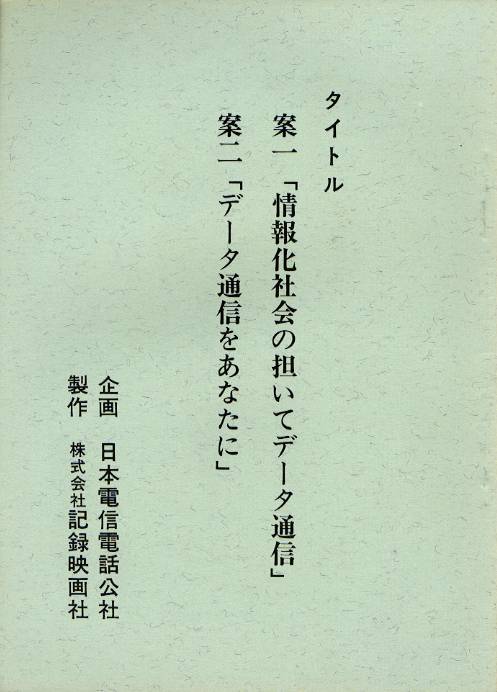 タイトル
案一「情報化社会の担いてデータ通信」
案二「データ通信をあなたに」
企画 日本電信電話公社
製作 株式会社記録映画社